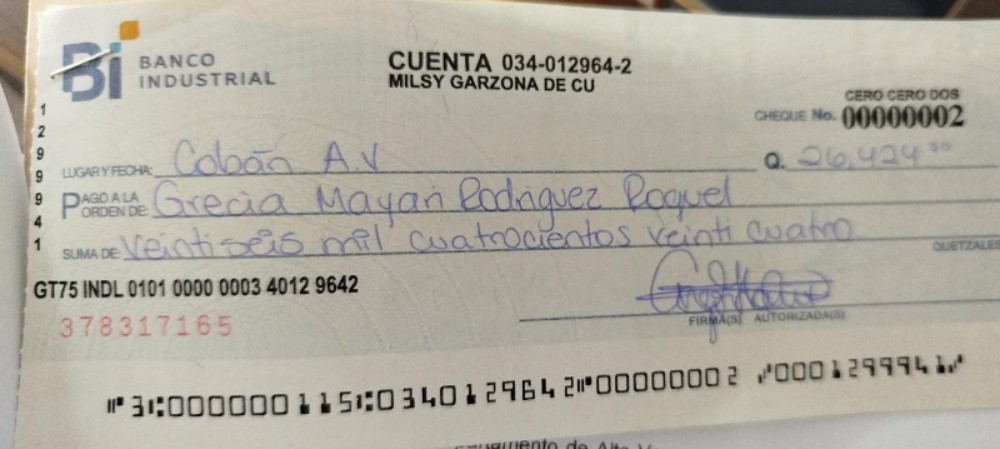 Bi BANCO INDUSTRIAL
CUENTA 034-012964-2
MILSY GARZONA DE CU
CERO CERO DOS
CHEQUE No. 00000002
LUGAR Y FECHA: Cobán A.V Q. 26,424.00
PAGO A LA ORDEN DE: Grecia Mayarí Rodriguez Roquel
SUMA DE: Veintiseis mil cuatrocientos veinti cuatro QUETZALES
12999941
GT75 INDL 0101 0000 0003 4012 9642
378317165
FIRMA(S) AUTORIZADA(S)
⑈ 3⑆000000115⑆0340129642⑈00000002 ⑇000129994 1⑇